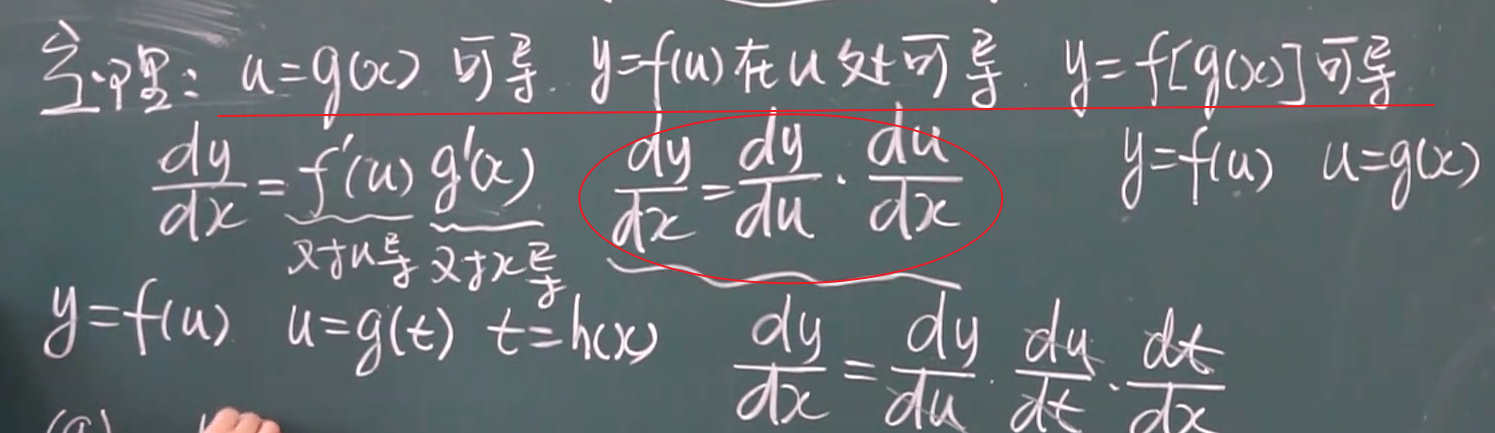 定理: u=g(x) 可导. y=f(u) 在 u 处可导. y=f[g(x)] 可导
dy/dx = f'(u) g'(x) dy/dx = dy/du · du/dx y=f(u) u=g(x)
对u导 对x导
y=f(u) u=g(t) t=h(x) dy/dx = dy/du · du/dt · dt/dx